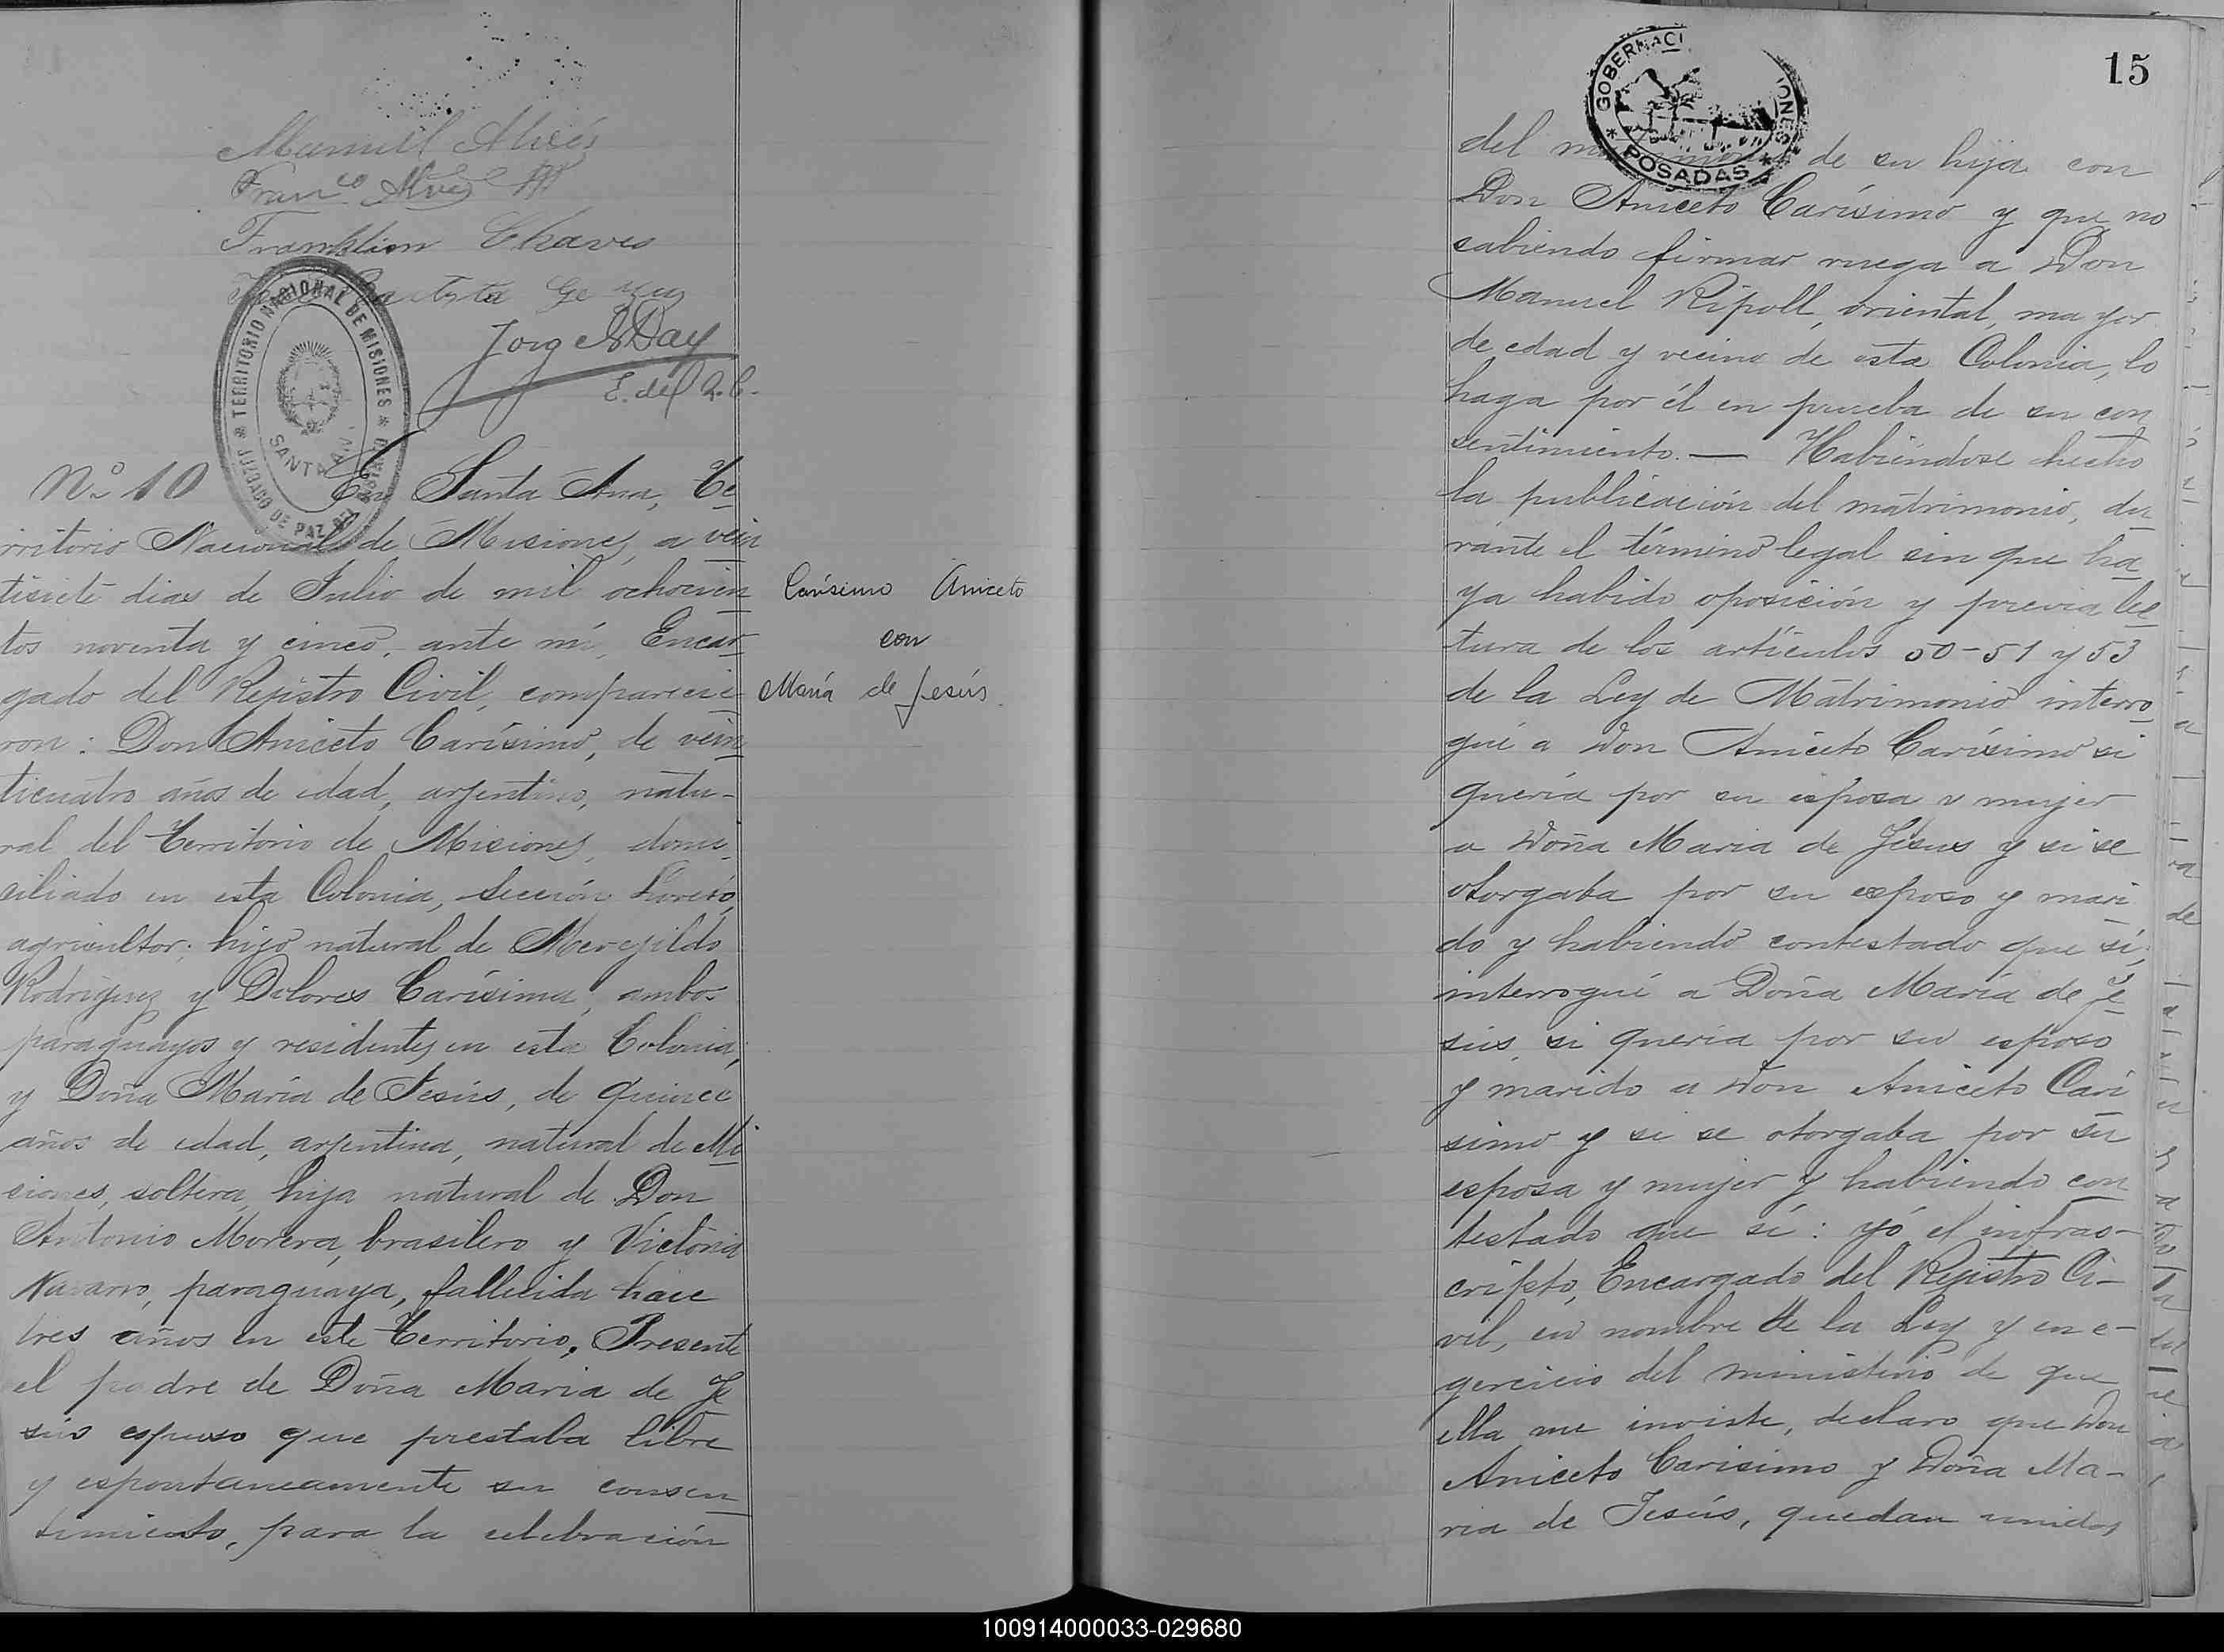 Manuel
Franco
Franklin Chaves
Bautista
Jorge Day
E. del R. C.
TERRITORIO NACIONAL DE MISIONES
JUZGADO DE PAZ DEL
SANTA ANA
Nº 10 En Santa Ana, Te
rritorio Nacional de Misiones, a vein
tisiete dias de Julio de mil ochocien
tos noventa y cinco, ante mí, Encar
gado del Rejistro Civil, comparecie
ron: Don Aniceto Carísimo, de vein
ticuatro años de edad, arjentino, natu-
ral del Territorio de Misiones, domi
ciliado en esta Colonia, Sección Loreto,
agricultor; hijo natural de Merejildo
Rodriguez y Dolores Carísima, ambos
paraguayos y residentes en esta Colonia,
y Doña María de Jesús, de quince
años de edad, arjentina, natural de Mi
siones, soltera, hija natural de Don
Antonio Morera, brasilero y Victoria
Navarro, paraguaya, fallecida hace
tres años en este Territorio. Presente
el padre de Doña Maria de Je
sús espuso que prestaba libre
y espontaneamente su consen
timiento, para la celebración
Carísimo Aniceto
con
María de Jesús
15
GOBERNACI ONES
POSADAS
del matrimonio de su hija con
Don Aniceto Carísimo y que no
sabiendo firmar ruega a Don
Manuel Ripoll, oriental, mayor
de edad y vecino de esta Colonia, lo
haga por él en prueba de su con
sentimiento. — Habiéndose hecho
la publicación del matrimonio, du
rante el término legal sin que ha
ya habido oposición y previa lec
tura de los artículos 50-51 y 53
de la Ley de Matrimonio interro
gué a Don Aniceto Carísimo si
quería por su esposa y mujer
a Doña Maria de Jesus y si se
otorgaba por su esposo y mari
do y habiendo contestado que sí,
interrogué a Doña María de Je
sús, si quería por su esposo
y marido a Don Aniceto Carí
simo y si se otorgaba por su
esposa y mujer y habiendo con
testado que sí: yó el infras-
cripto, Encargado del Rejistro Ci-
vil, en nombre de la Ley y en e-
gercicio del ministerio de que
ella me inviste, declaro que Don
Aniceto Carisimo y Doña Ma-
ria de Jesús, quedan unidos
100914000033-029680